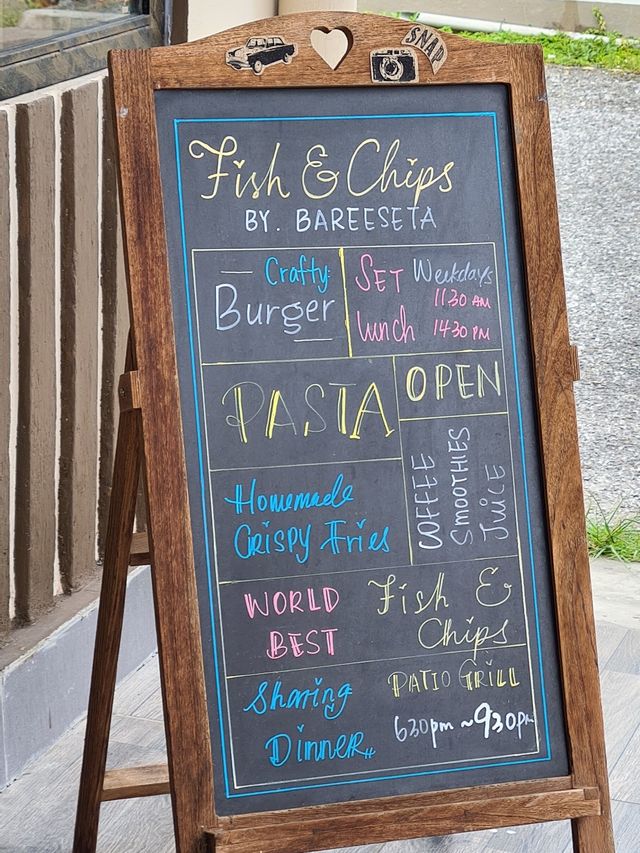 SNAP
Fish & Chips
BY. BAREESETA
Crafty
Burger
SET Weekdays
11 30 AM
Lunch 14 30 PM
PASTA
OPEN
COFFEE
SMOOTHIES
JUICE
Homemade
CRISPY Fries
WORLD
BEST
Fish &
Chips
Sharing
DINNER
PATIO GRILL
630pm ~ 930pm